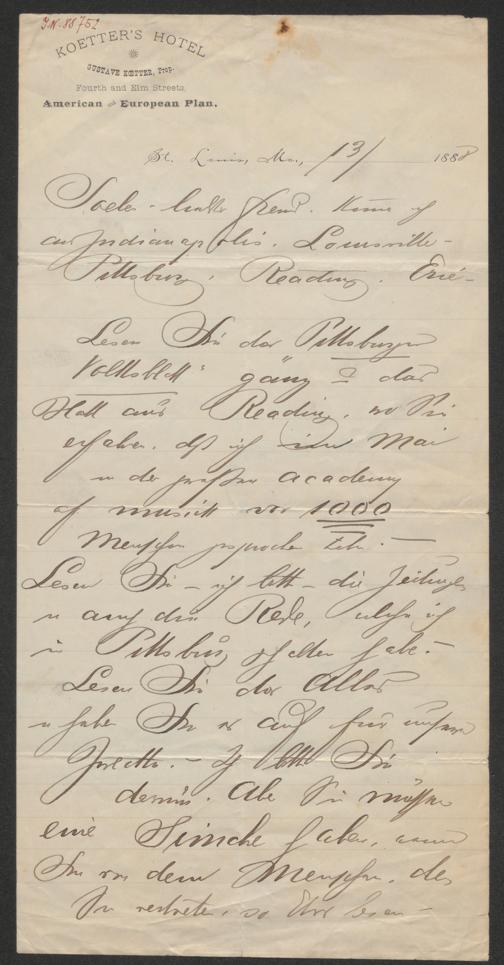 I.N. 88752
KOETTER'S HOTEL
GUSTAVE KOETTER, Prop.
Fourth and Elm Streets,
American and European Plan.
St. Louis, Mo., 13/ 1888
Soeben Komme ich
aus Indianapolis. Louisville-
Pittsburg. Reading. Erie-
Lesen Sie das Pittsburger
Volksblatt das
Blatt aus Reading, wo Sie
erfahren. daß ich im Mai
in der großen academy
of musick vor 1000
Menschen gesprochen habe.-
Lesen Sie - ich bitte - die Zeitungen
u auch die Rede, welche ich
in Pittsburg gehalten habe.-
Lesen Sie das Alles
u haben Sie es auch für unsere
Ich bitte Sie
darum. Aber Sie müssen
eine haben, wenn
Sie von dem Menschen, den
Sie vertreten, so